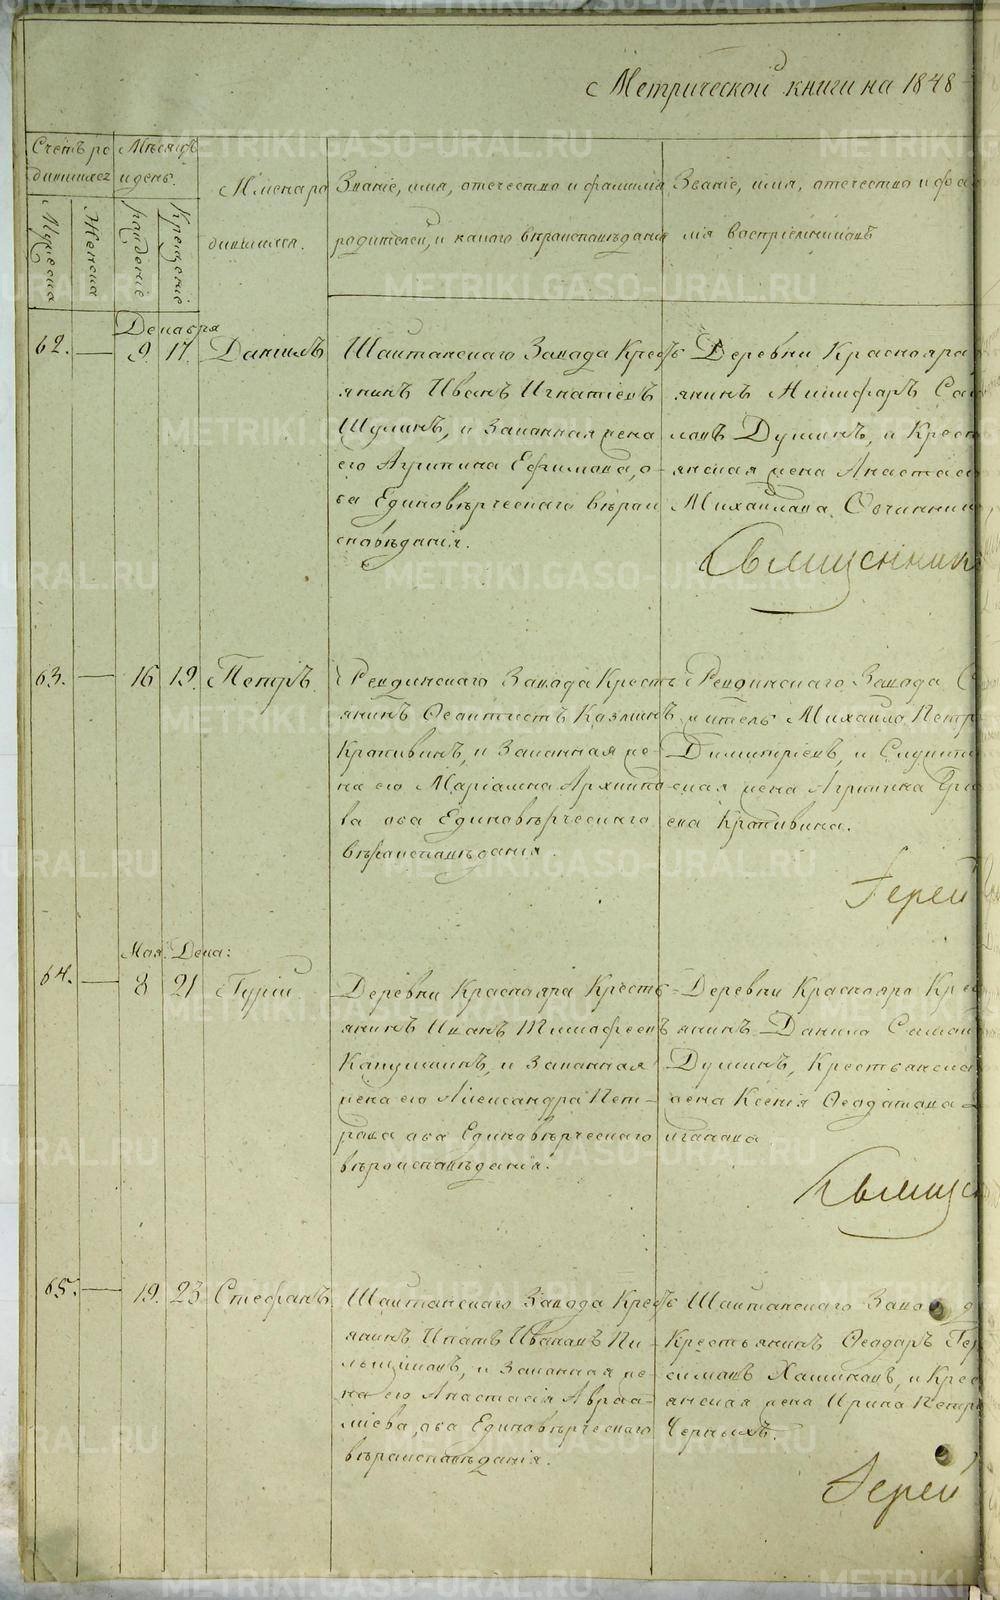 с Метрической книги на 1848
Счетъ ро
дившихся
Мѣсяцъ
и день.
Мужеска
Женска
рожденіе
Крещеніе
Имена ро
дившихся.
Званіе, имя, отечество и фамилія
родителей, и какого вѣроисповѣданія
Званіе, имя, отечество и фами
лія воспріемниковъ
Декабря
62. — 9. 17. Даніилъ
Шайтанскаго Завода Кресть
янинъ Иванъ Игнатіевъ
Шулинъ, и Законная жена
его Агрипина Ефимова, о-
ба Единовѣрческаго вѣрои
сповѣданія.
Деревни Краснояра
янинъ Никифаръ Са
ловъ Душинъ, и Крест
янская жена Анастас
Михайлова Овчинни
Священник
63. — 16 19. Петръ.
Ревдинскаго Завода Кресть
янинъ Феоктистъ Козминъ
Крапивинъ, и Законная же-
на его Маріамна Архипо
ва оба Единовѣрческаго
вѣроисповѣданія.
Ревдинскаго Завода С
житель Михайло Петр
Димитріевъ, и Служите
ская жена Агрипина Гри
ева Крапивина.
Іерей
Мая. Дека:
64. — 8 21 Гурій
Деревни Краснояра Кресть
янинъ Иванъ Тимофеевъ
Капушкинъ, и Законная
жена его Александра Пет-
рова оба Единовѣрческаго
вѣроисповѣданія.
Деревни Краснояра Кре
янинъ Данило Сам
Душинъ, Крестьянска
жена Ксенія Феодотова
Священ
65. — 19. 23 Стефанъ
Шайтанскаго Завода Кресть
янинъ Ипатъ Ивановъ Пи-
льщиковъ, и Законная же-
на его Анастасія Авраа-
міева, оба Единовѣрческаго
вѣроисповѣданія.
Шайтанскаго Завода
Крестьянинъ Феодоръ Гер
симовъ Хаминовъ, и Крес
янская жена Ирина Петр
Черныхъ.
Іерей
METRIKI.GASO-URAL.RU